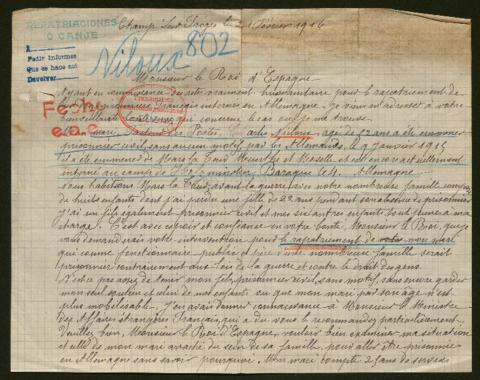 REPATRIACIONES
O CANJE
A
Pedir informes
que se hace and
Devolver
Niloux 802
Champ sur Vosges le 2 Février 1916
Monsieur le Roi d'Espagne
Ayant eu connaissance de votre humanitaire pour le rapatriement de
prisonniers français internés en Allemagne. Je viens m'adresser à votre
bienveillance qui concerne le cas où je me trouve.
Mon mari, facteur des Postes, Charles Niloux, agé de 52 ans a été emmener
prisonnier civil, sans aucun motif par les Allemands, le 9 Janvier 1915
et a été emmené de Mars la Tour Meurthe et Moselle et est encore actuellement
interné au camp de Baraque Allemagne
nous habitions Mars la Tour avant la guerre avec notre nombreuse famille
de huit enfants dont j'ai perdu une fille de 22 ans pendant son absence de prisonnier
j'ai un fils également prisonnier civil et mes six autres enfants tout jeune à ma
charge. C'est avec espoir et confiance en votre bonté, Monsieur le Roi, que je
vous demanderai votre intervention pour le rapatriement de mon mari
qui comme fonctionnaire public et père d'une nombreuse famille serait
prisonnier contrairement aux lois de la guerre et contre le droit des gens.
N'est ce pas assez de donner mon fils, prisonnier civil, sans motif, sans encore garder
mon seul soutien et celui de mes enfants, vu que mon mari par son âge n'est
plus mobilisable. J'en avais donné connaissance à Monsieur le Ministre
des Affaires étrangères Français, qui a dû vous le recommander particulièrement.
Veuillez bien, Monsieur le Roi d'Espagne, vouloir bien examiner ma situation
et celle de mon mari arraché du sein de sa famille, pour aller être prisonnier
en Allemagne sans savoir pourquoi. Mon mari compte 25 ans de services